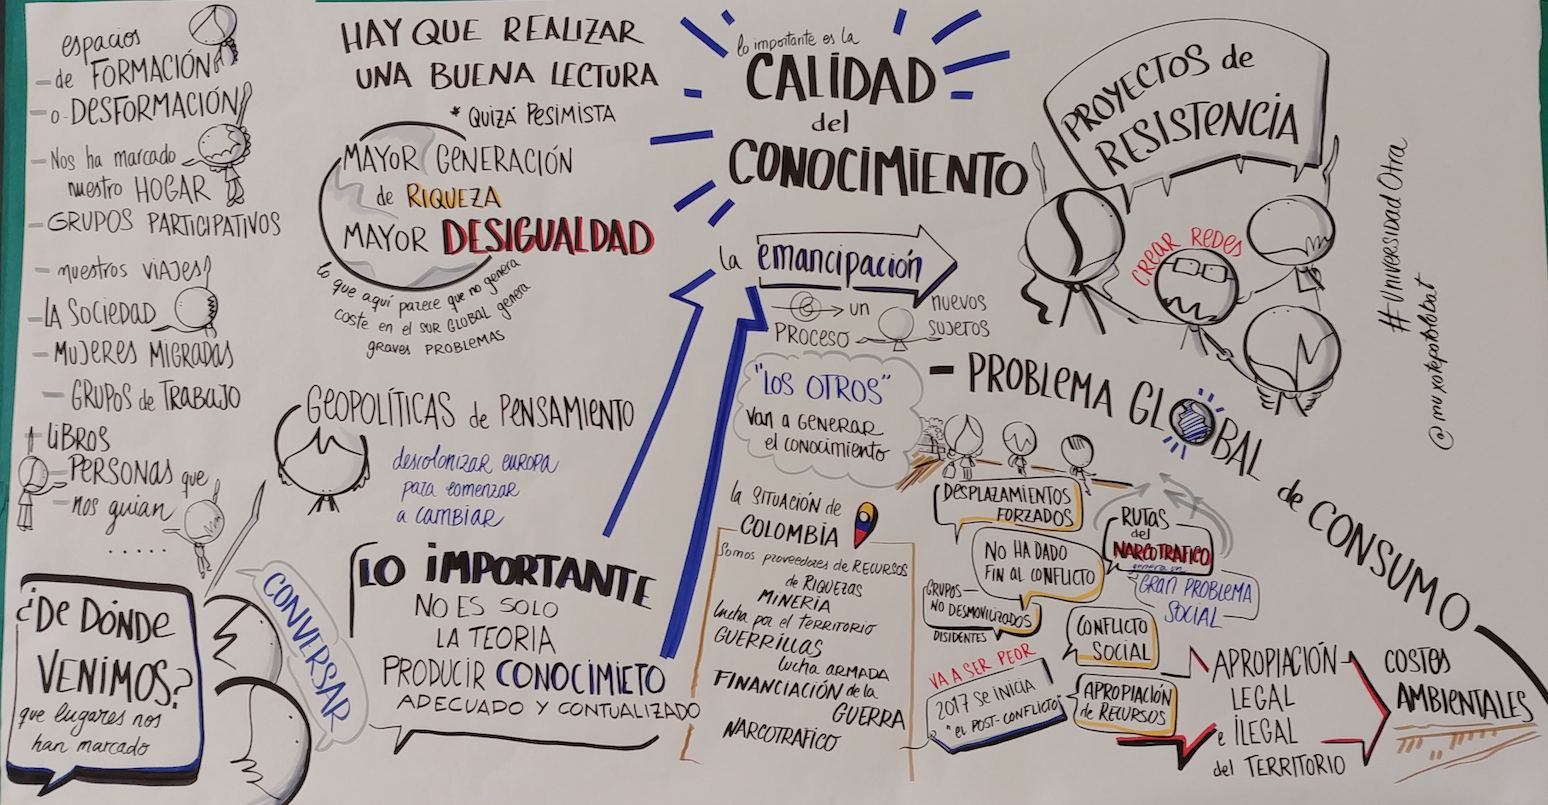 espacios
- de FORMACIÓN
- o DESFORMACIÓN
- Nos ha marcado
nuestro HOGAR
- GRUPOS PARTICIPATIVOS
- nuestros viajes
- LA SOCIEDAD
- MUJERES MIGRADAS
- GRUPOS de TRABAJO
+ LIBROS
- PERSONAS que
- nos guian
.....
¿DE DÓNDE
VENIMOS?
que lugares nos
han marcado
CONVERSAR
HAY QUE REALIZAR
UNA BUENA LECTURA
* QUIZÁ PESIMISTA
MAYOR GENERACIÓN
de RIQUEZA
MAYOR DESIGUALDAD
lo que aquí parece que no genera
coste en el SUR GLOBAL genera
graves PROBLEMAS
GEOPOLÍTICAS de PENSAMIENTO
descolonizar europa
para comenzar
a cambiar
LO IMPORTANTE
NO ES SOLO
LA TEORIA
PRODUCIR CONOCIMIETO
ADECUADO Y CONTUALIZADO
lo importante es la
CALIDAD
del
CONOCIMIENTO
la emancipación
un
PROCESO
nuevos
sujetos
"LOS OTROS"
van a GENERAR
el CONOCIMIENTO
la SITUACIÓN de
COLOMBIA
Somos proveedores de RECURSOS
de RIQUEZAS
MINERÍA
lucha por el TERRITORIO
GUERRILLAS
lucha ARMADA
FINANCIACIÓN de la
GUERRA
NARCOTRAFICO
PROYECTOS de
RESISTENCIA
CREAR REDES
- PROBLEMA GLOBAL de CONSUMO
DESPLAZAMIENTOS
FORZADOS
NO HA DADO
FIN AL CONFLICTO
GRUPOS
NO DESMOVILIZADOS
DISIDENTES
VA A SER PEOR
2017 SE INICIA
"EL POST-CONFLICTO"
RUTAS
del
NARCOTRAFICO
genera un
GRAN PROBLEMA
SOCIAL
CONFLICTO
SOCIAL
APROPIACIÓN
de RECURSOS
APROPIACIÓN
LEGAL
e ILEGAL
del TERRITORIO
COSTES
AMBIENTALES
#UniversidadOtra